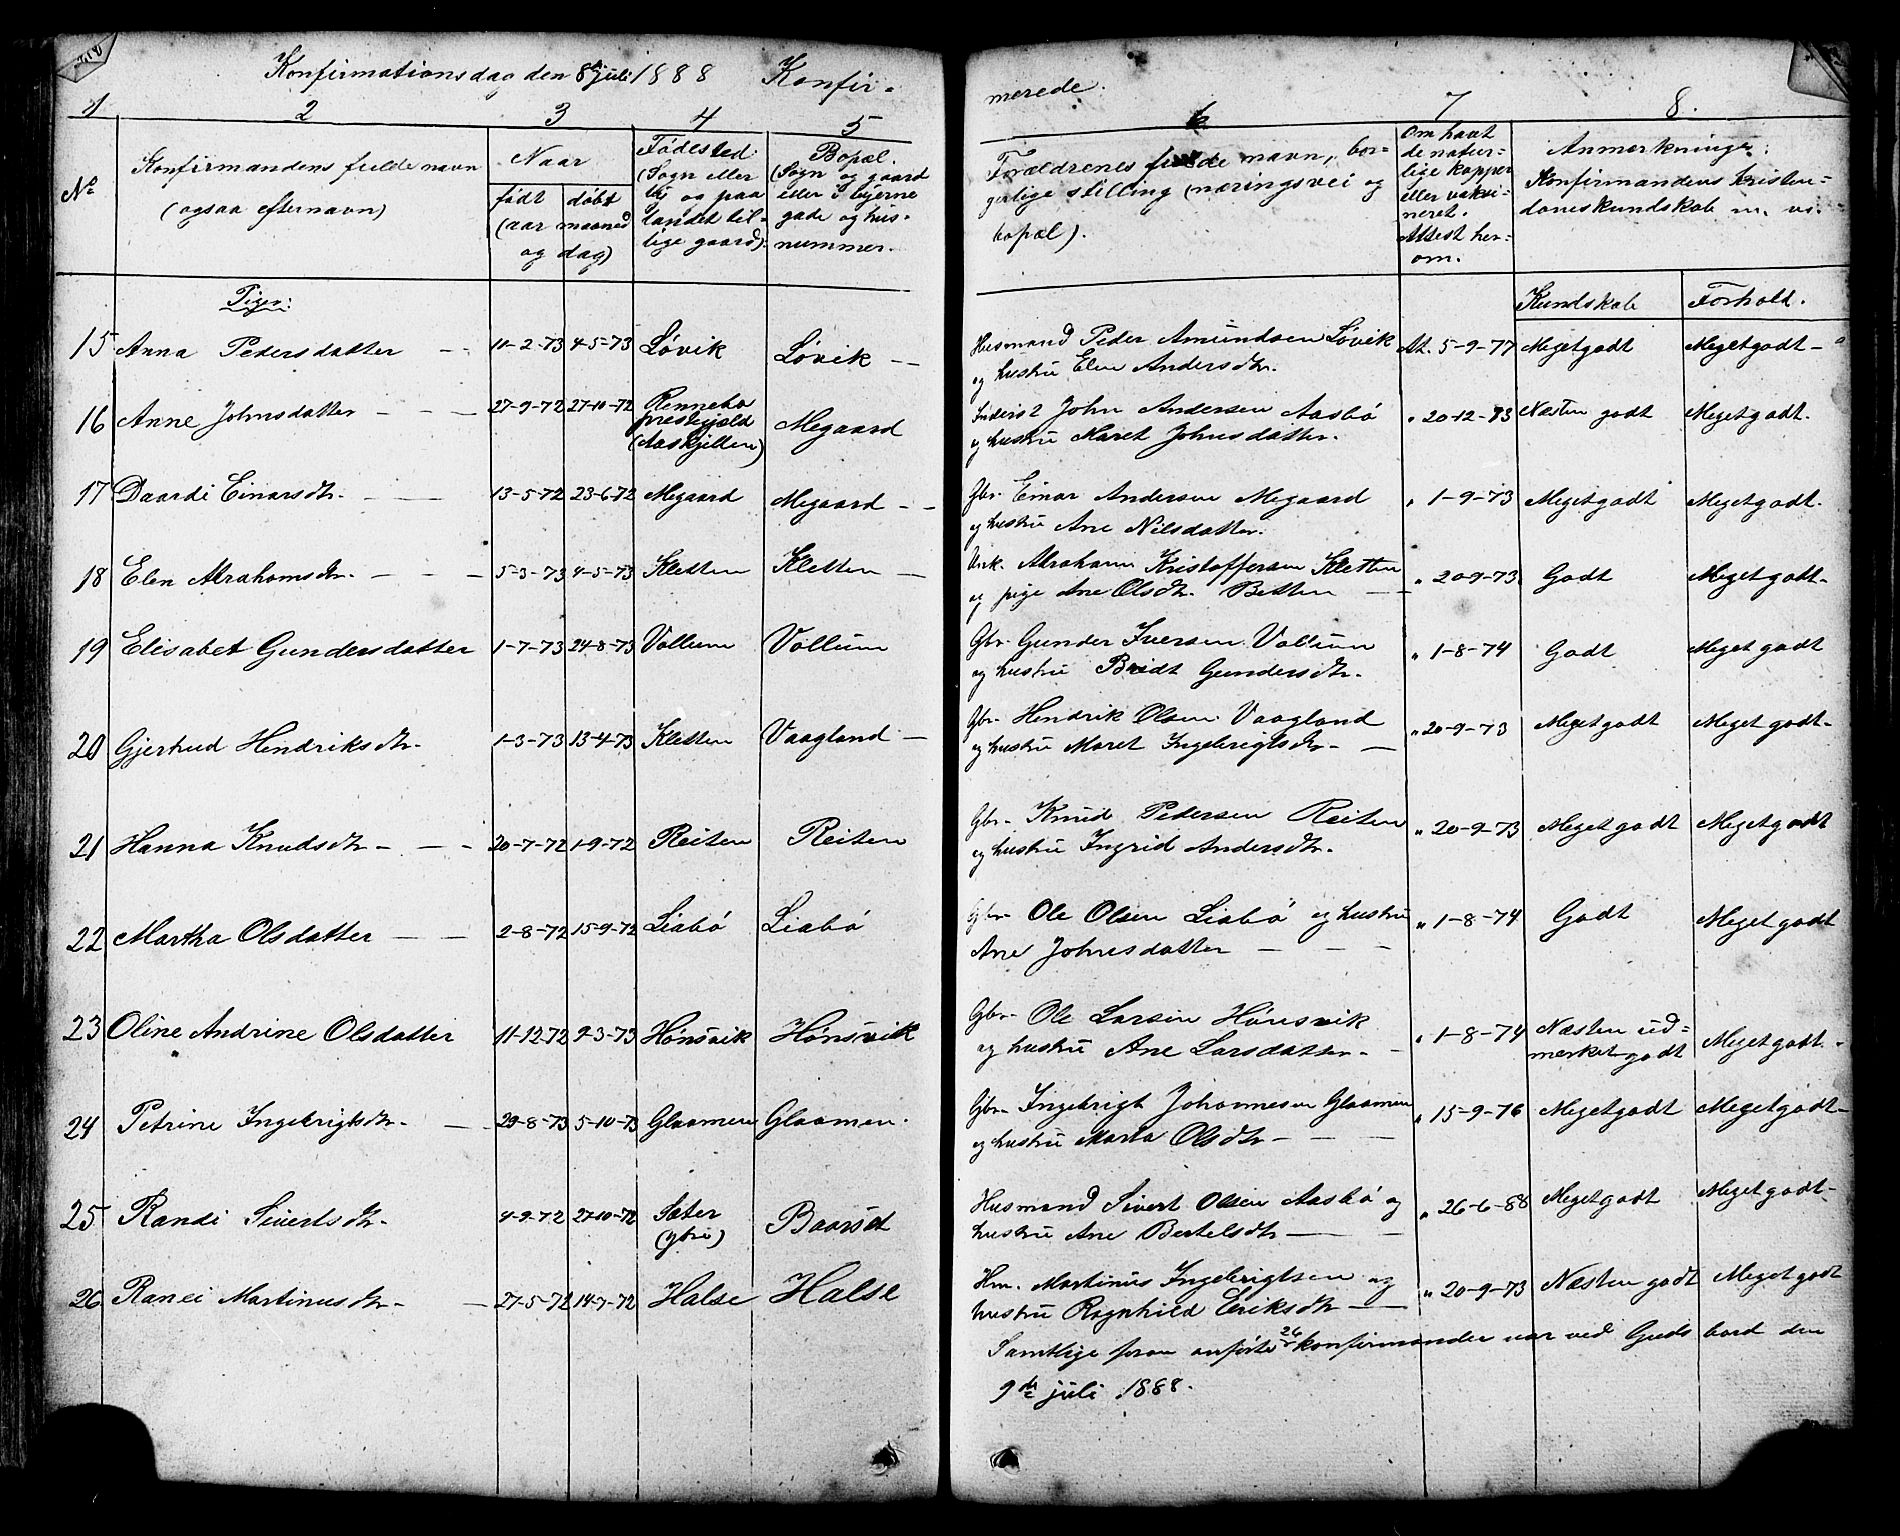 Konfirmationsdag den 8de juli 1888 Konfir-
merede.
1 2 3 4 5 6 7 8.
No
Konfirmandens fulde navn
(ogsaa efternavn)
Naar
født døbt
(aar maaned
og dag)
Fødested:
(Sogn eller
by og paa
landet til-
lige gaard).
Bopæl.
(Sogn og gaard
eller i byerne
gade og hus-
nummer.
Forældrenes fulde navn, bor-
gerlige stilling (næringsvei og
bopæl).
Om havt
de natur-
lige kopper
eller vaksi-
neret.
Attest her-
om.
Anmærkninger:
Konfirmandens kristen-
domskundskab m. v.
Kundskab Forhold.
Piger:
15 Anna Pedersdatter - - 11-2-73 4-5-73 Løvik Løvik - Husmand Peder Amundsen Løvik At. 5-9-77 Megetgodt Megetgodt-
og hustru Elen Andersdtr.
16 Anne Johnsdatter - - - 27-9-72 27-10-72 Rennebo
prestegjæld
(Aaskjelden) Megaard Inderst John Andersen Aasbø " 20-12-73 Næsten godt Megetgodt.
og hustru Maret Johnsdatter.
17 Daardi Einarsdtr. - - 13-5-72 23-6-72 Megaard Megaard - - Gbr. Einar Andersen Megaard " 1-9-73 Megetgodt Megetgodt.
og hustru Ane Nilsdatter.
18 Elen Abrahamsdtr. - - - 5-3-73 4-5-73 Kletten Kletten - Unk. Abraham Kristoffersen Kletten " 20-9-73 Godt Megetgodt-
og pige Ane Olsdtr. Betten - -
19 Elisabet Gundersdatter 1-7-73 24-8-73 Vollum Vollum Gbr. Gunder Iversen Vollum " 1-8-74 Godt Meget godt
og hustru Bridt Gundersdtr.
20 Gjertrud Hendriksdtr- 1-3-73 13-4-73 Kletten Vaagland - Gbr. Hendrik Olsen Vaagland " 20-9-73 Megetgodt Meget godt-
og hustru Maret Ingebrigtsdtr- -
21 Hanna Knudsdtr- - - 20-7-72 1-9-72 Reiten Reiten Gbr. Knud Pedersen Reiten " 20-9-73 Megetgodt Megetgodt
og hustru Ingrid Andersdtr.
22 Martha Olsdatter - - 2-8-72 15-9-72 Liabø Liabø Gbr. Ole Olsen Liabø og hustru " 1-8-74 Godt Megetgodt
Ane Johnsdatter - - -
23 Oline Andrine Olsdatter 11-12-72 9-3-73 Hønsvik Hønsvik Gbr. Ole Larsen Hønsvik " 1-8-74 Næsten ud-
mærket godt Megetgodt.
og hustru Ane Larsdatter. -
24 Petrine Ingebrigtsdtr. - 29-8-73 5-10-73 Glaamen Glaamen. Gbr. Ingebrigt Johannesen Glaamen " 15-9-76 Megetgodt Megetgodt-
og hustru Marta Olsdtr - - -
25 Randi Sivertsdtr. 4-9-72 27-10-72 Sæter
(ytre) Baarset Husmand Sivert Olsen Aasbø og " 26-6-88 Megetgodt Megetgodt-
hustru Ane Bertelsdtr - -
26 Ranei Martinusdtr. - 27-5-72 14-7-72 Halse Halse Hm. Martinus Ingebrigtsen og " 20-9-73 Næsten godt Megetgodt
hustru Ragnhild Eriksdtr -
Samtlige foran anførte 26 konfirmander var ved Guds bord den
9de juli 1888.